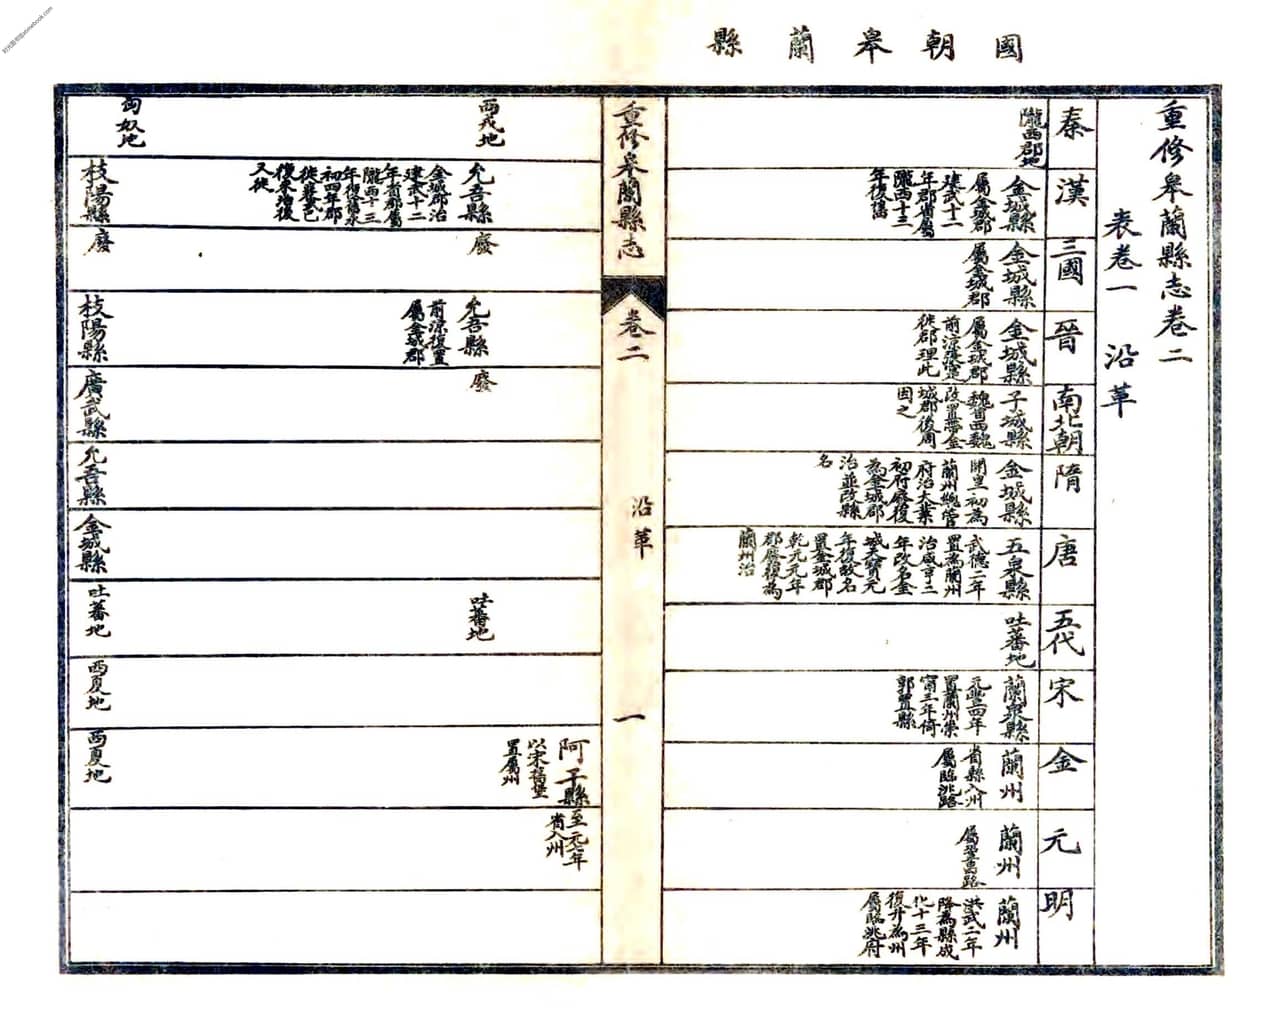 國朝皋蘭縣
重修皋蘭縣志卷二
表卷一 沿革
秦
隴西郡地
漢
金城縣
屬金城郡
建武十二
年郡省屬
隴西十三
年復舊
三國
金城縣
屬金城郡
晉
金城縣
屬金城郡
前涼
徙郡理此
南北朝
子城縣
魏曾西魏
改置金
城郡後周
因之
隋
金城縣
開皇初為
蘭州總管
府治大業
初府廢復
為金城郡
治並改縣
名
唐
五泉縣
武德二年
置為蘭州
治咸亨三
年改名金
城天寶元
年復故名
置金城郡
乾元元年
郡廢復為
蘭州治
五代
吐蕃地
宋
蘭泉縣
元豐四年
置蘭州崇
甯三年倚
郭置縣
金
蘭州
省縣入州
屬臨洮路
元
蘭州
屬鞏昌路
明
蘭州
洪武二年
降為縣成
化十三年
復升為州
屬臨洮府
重修皋蘭縣志
卷二
沿革
一
西戎地
匈奴地
允吾縣
金城郡治
建武十二
年省郡屬
隴西十三
年復舊永
初四年郡
徙襄武已
復來治後
又徙
枝陽縣
廢
廢
允吾縣
前涼復置
屬金城郡
枝陽縣
廢
廣武縣
允吾縣
金城縣
吐蕃地
吐蕃地
西夏地
阿干縣
以宋堡
置屬州
西夏地
至元七年
省入州